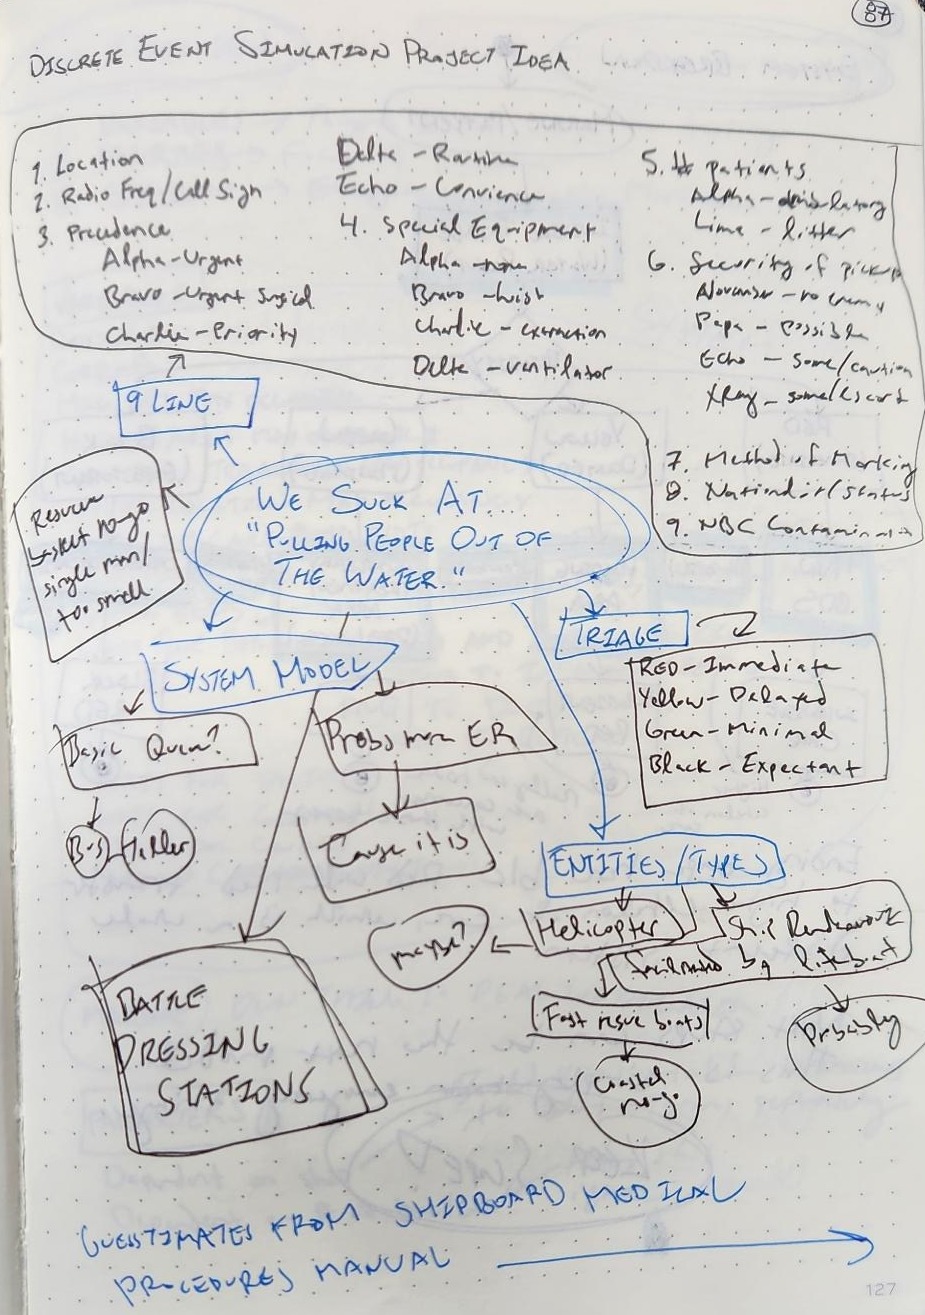 87
DISCRETE EVENT SIMULATION PROJECT IDEA
1. Location
2. Radio Freq/Call Sign
3. Precedence
Alpha-Urgent
Bravo-Urgent Surgical
Charlie-Priority
Delta-Routine
Echo-Convience
4. Special Equipment
Alpha-none
Bravo-hoist
Charlie-extraction
Delta-ventilator
5. # patients
Alpha-ambulatory
Lima-litter
6. Security of pickup
November-no enemy
Papa-possible
Echo-Some/caution
XRay-some/escort
7. Method of Marking
8. Nationality/status
9. NBC Contamination
9 LINE
WE SUCK AT
"PULLING PEOPLE OUT OF
THE WATER."
Rescue
basket no-go
single man/
too small
SYSTEM MODEL
TRIAGE
RED-Immediate
Yellow-Delayed
Green-Minimal
Black-Expectant
Basic Queue?
Probs more ER
Cause it is
ENTITIES/TYPES
Helicopter
maybe?
Ship Rendezvous
facilitated by lifeboat
Fast rescue boats
Probably
Coastal
no-go
BATTLE
DRESSING
STATIONS
GUESSTIMATES FROM SHIPBOARD MEDICAL
PROCEDURES MANUAL
127